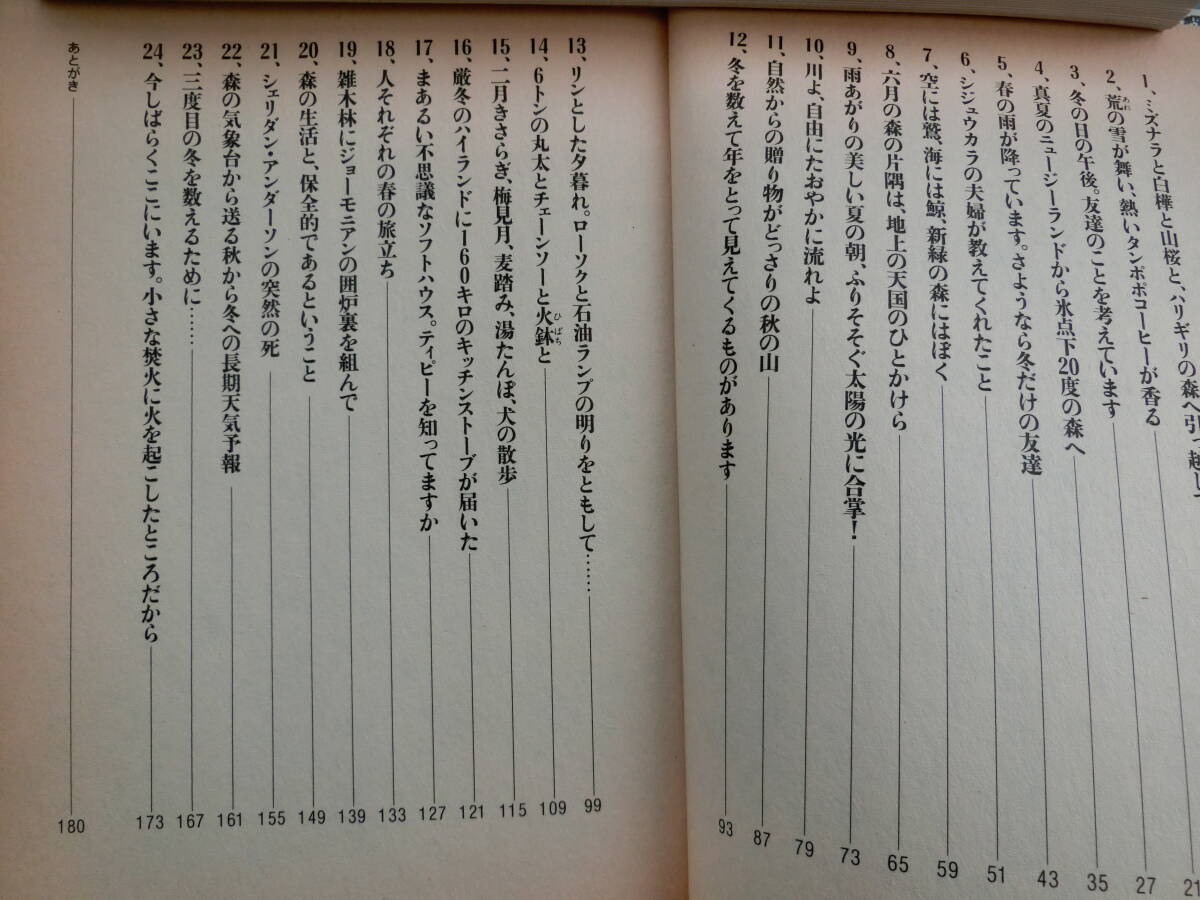 1、ミズナラと白樺と山桜と、ハリギリの森へ引っ越して 21
2、荒の雪が舞い、熱いタンポポコーヒーが香る 27
3、冬の日の午後。友達のことを考えています 35
4、真夏のニュージーランドから氷点下20度の森へ 43
5、春の雨が降っています。さようなら冬だけの友達 51
6、シジュウカラの夫婦が教えてくれたこと 59
7、空には鷲、海には鯨、新緑の森にはぼく 65
8、六月の森の片隅は、地上の天国のひとかけら 73
9、雨あがりの美しい夏の朝、ふりそそぐ太陽の光に合掌！ 79
10、川よ、自由にたおやかに流れよ
11、自然からの贈り物がどっさりの秋の山 87
12、冬を数えて年をとって見えてくるものがあります 93
13、リンとした夕暮れ。ローソクと石油ランプの明りをともして…… 99
14、6トンの丸太とチェーンソーと火鉢と 109
ひばち
15、二月きさらぎ、梅見月、麦踏み、湯たんぽ、犬の散歩 115
16、厳冬のハイランドに160キロのキッチンストーブが届いた 121
17、まあるい不思議なソフトハウス。ティピーを知ってますか 127
18、人それぞれの春の旅立ち 133
19、雑木林にジョーモニアンの囲炉裏を組んで 139
20、森の生活と、保全的であるということ 149
21、シェリダン・アンダーソンの突然の死 155
22、森の気象台から送る秋から冬への長期天気予報 161
23、三度目の冬を数えるために…… 167
24、今しばらくここにいます。小さな焚火に火を起こしたところだから 173
あとがき 180